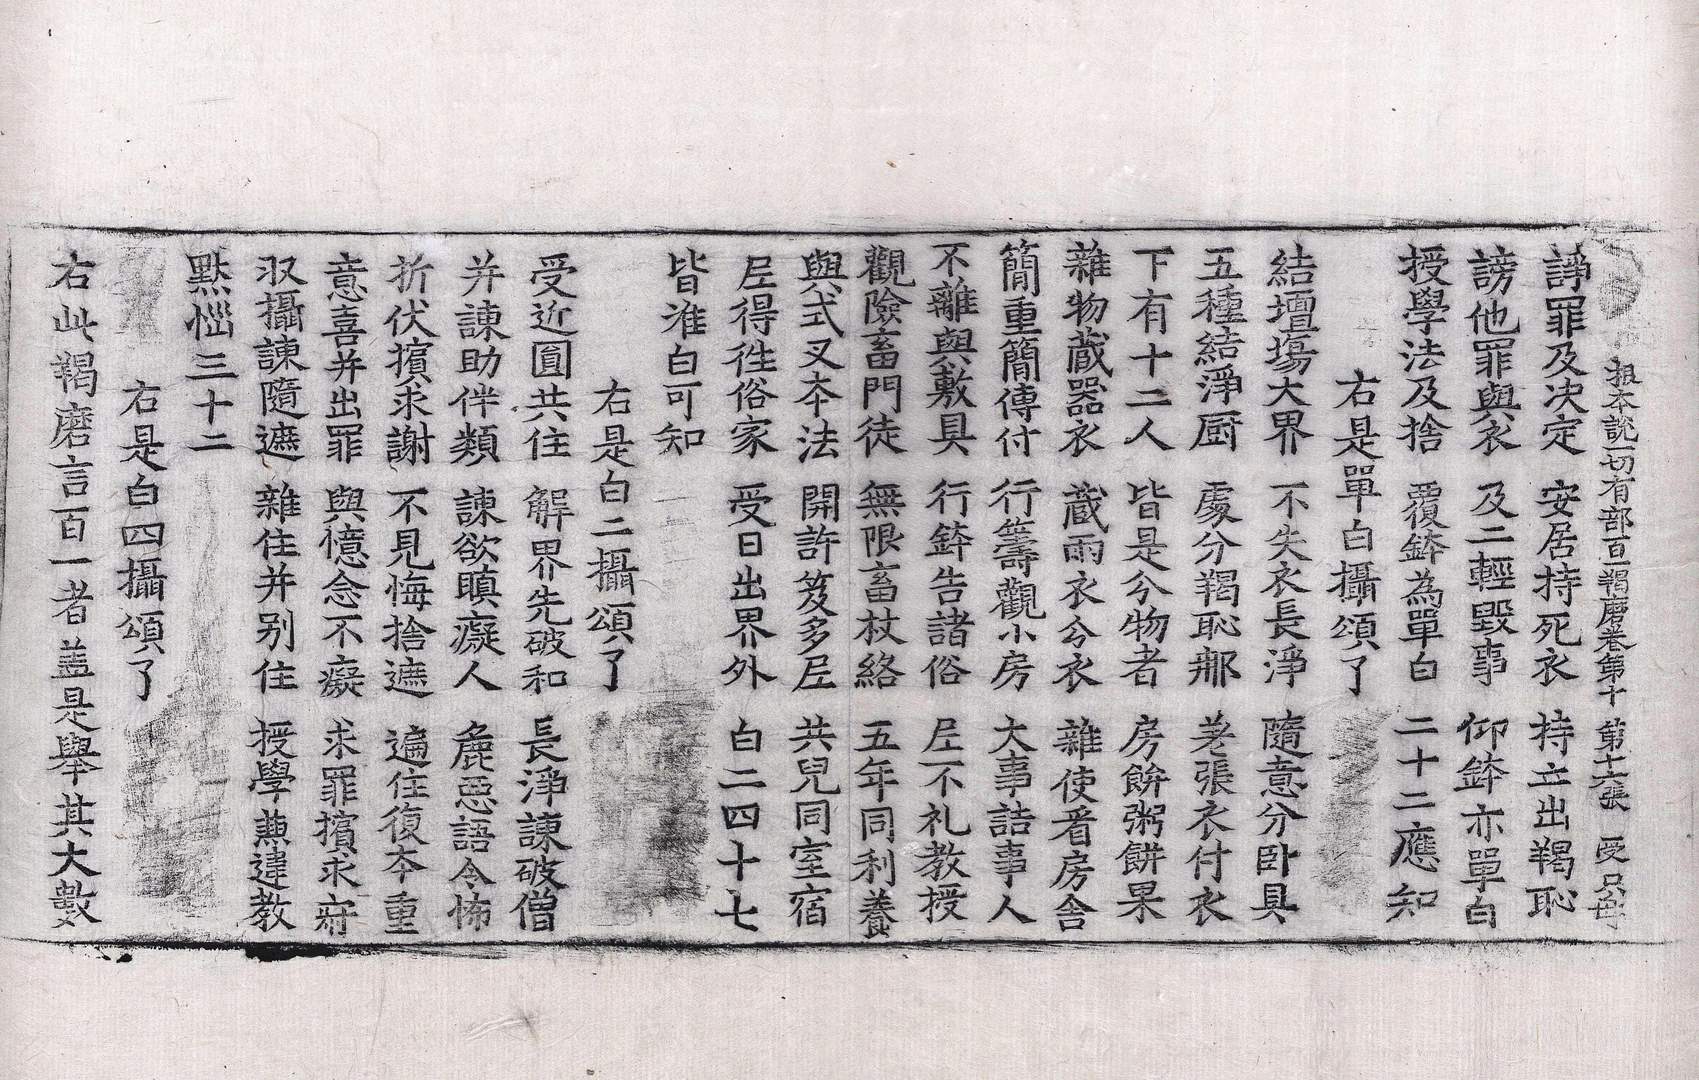 根本說一切有部百一羯磨卷第十 第十六張 受
諍罪及决定 安居持死衣 持立出羯恥
謗他罪與衣 及二輕毀事 仰鉢亦單白
授學法及捨 覆鉢為單白 二十二應知
右是單白攝頌了
結壇塲大界 不失衣長淨 隨意分卧具
五種結淨厨 處分羯恥那 差張衣付衣
下有十二人 皆是分物者 房餅粥餅果
雜物藏器衣 藏雨衣分衣 雜使看房舍
簡重簡傳付 行籌觀小房 大事詰事人
不離與敷具 行鉢告諸俗 尼不礼教授
觀險畜門徒 無限畜杖絡 五年同利養
與式叉本法 開許笈多尼 共兒同室宿
尼得徃俗家 受日出界外 白二四十七
皆准白可知
右是白二攝頌了
受近圓共住 解界先破和 長淨諫破僧
并諫助伴類 諫欲瞋癡人 麁惡語令怖
折伏擯求謝 不見悔捨遮 遍住復本重
意喜并出罪 與憶念不癡 求罪擯求寂
収攝諫隨遮 雜住并别住 授學𠔥違教
㸃惱三十二
右是白四攝頌了
右此羯磨言百一者盖是舉其大數